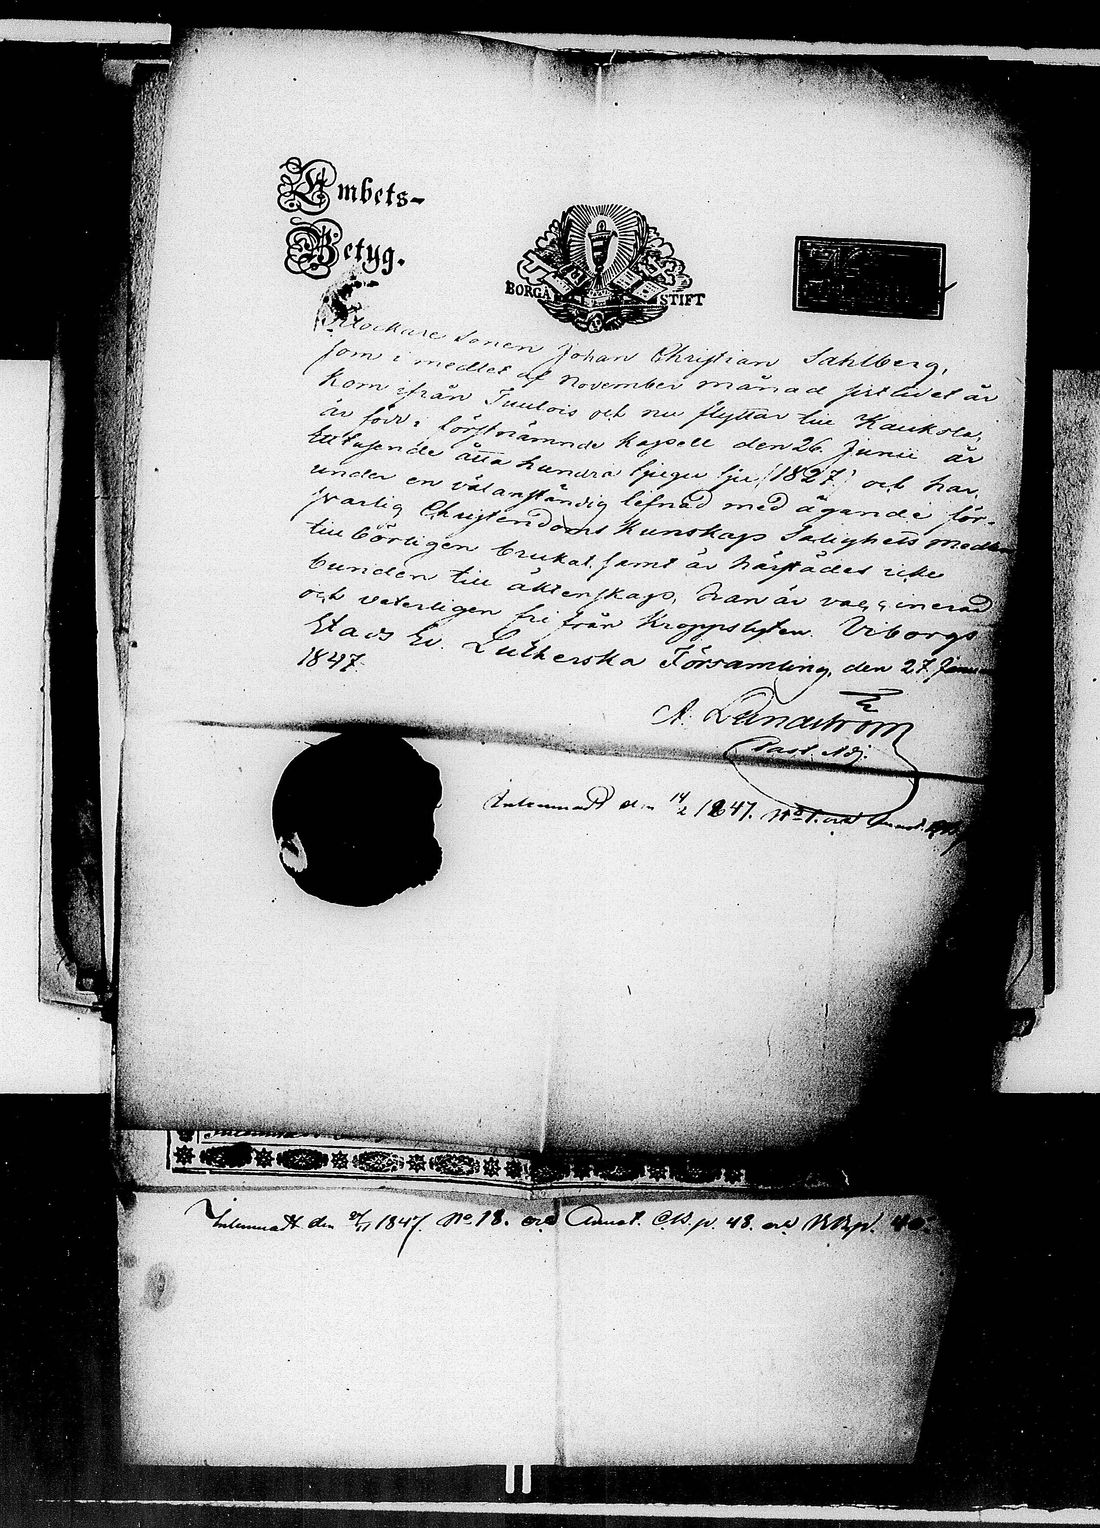 Embets-
Betyg.
BORGÅ STIFT
Klockare Sonen Johan Christian Sahlberg,
som i medlet af November månad sistledet år
kom ifrån Tuulois och nu flyttar till Kaukola,
är född i förstnämnde kapell den 26 Junii år
Ett tusende åtta hundra tjugu sju (1827) och har
under en välanständig lefnad med ägande för-
svarlig Christendoms Kunskap Salighets medlen
till börligen brukat, samt är härstädes icke
bunden till äktenskap. Han är vaccinerad
och veterligen fri från Kroppslyten. Viborgs
Stads Ev. Lutherska Församling, den 27 Januari
1847.
A. Lundström
Past. Adj.
Inlemnadt den 14/2 1847. No 1. och
Inlemnadt den 1847 No 18. och Annot. C.B. p. 48. och